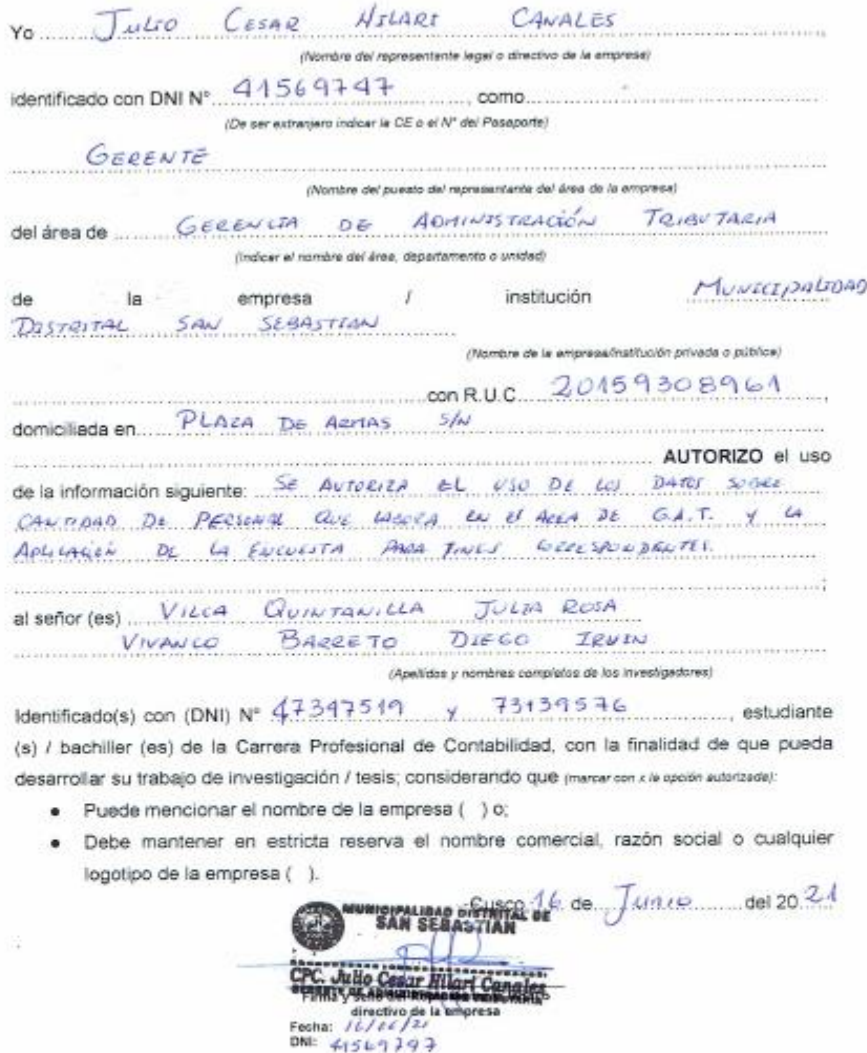 Yo JULIO CESAR HILARI CANALES
(Nombre del representante legal o directivo de la empresa)
identificado con DNI N° 41569747, como
(De ser extranjero indicar la CE o el N° del Pasaporte)
GERENTE
(Nombre del puesto del representante del área de la empresa)
del área de GERENCIA DE ADMINISTRACIÓN TRIBUTARIA
(Indicar el nombre del área, departamento o unidad)
de la empresa / institución MUNICIPALIDAD
DISTRITAL SAN SEBASTIAN
(Nombre de la empresa/institución privada o pública)
con R.U.C. 20159308961,
domiciliada en PLAZA DE ARMAS S/N
AUTORIZO el uso
de la información siguiente: SE AUTORIZA EL USO DE LOS DATOS SOBRE
CANTIDAD DE PERSONAL QUE LABORA EN EL AREA DE G.A.T. Y LA
APLICACIÓN DE LA ENCUESTA PARA FINES CORRESPONDIENTES.
;
al señor (es) VILCA QUINTANILLA JULIA ROSA
VIVANCO BARRETO DIEGO IRVIN
(Apellidos y nombres completos de los investigadores)
Identificado(s) con (DNI) N° 47347519 y 73139576, estudiante
(s) / bachiller (es) de la Carrera Profesional de Contabilidad, con la finalidad de que pueda
desarrollar su trabajo de investigación / tesis; considerando que (marcar con x la opción autorizada):
• Puede mencionar el nombre de la empresa ( ) o;
• Debe mantener en estricta reserva el nombre comercial, razón social o cualquier
logotipo de la empresa ( ).
Cusco 16 de Junio del 2021
MUNICIPALIDAD DISTRITAL DE
SAN SEBASTIAN
CPC. Julio Cesar Hilari Canales
GERENTE DE ADMINISTRACION TRIBUTARIA
Firma y sello del
directivo de la empresa
Fecha: 16/06/21
DNI: 41569747